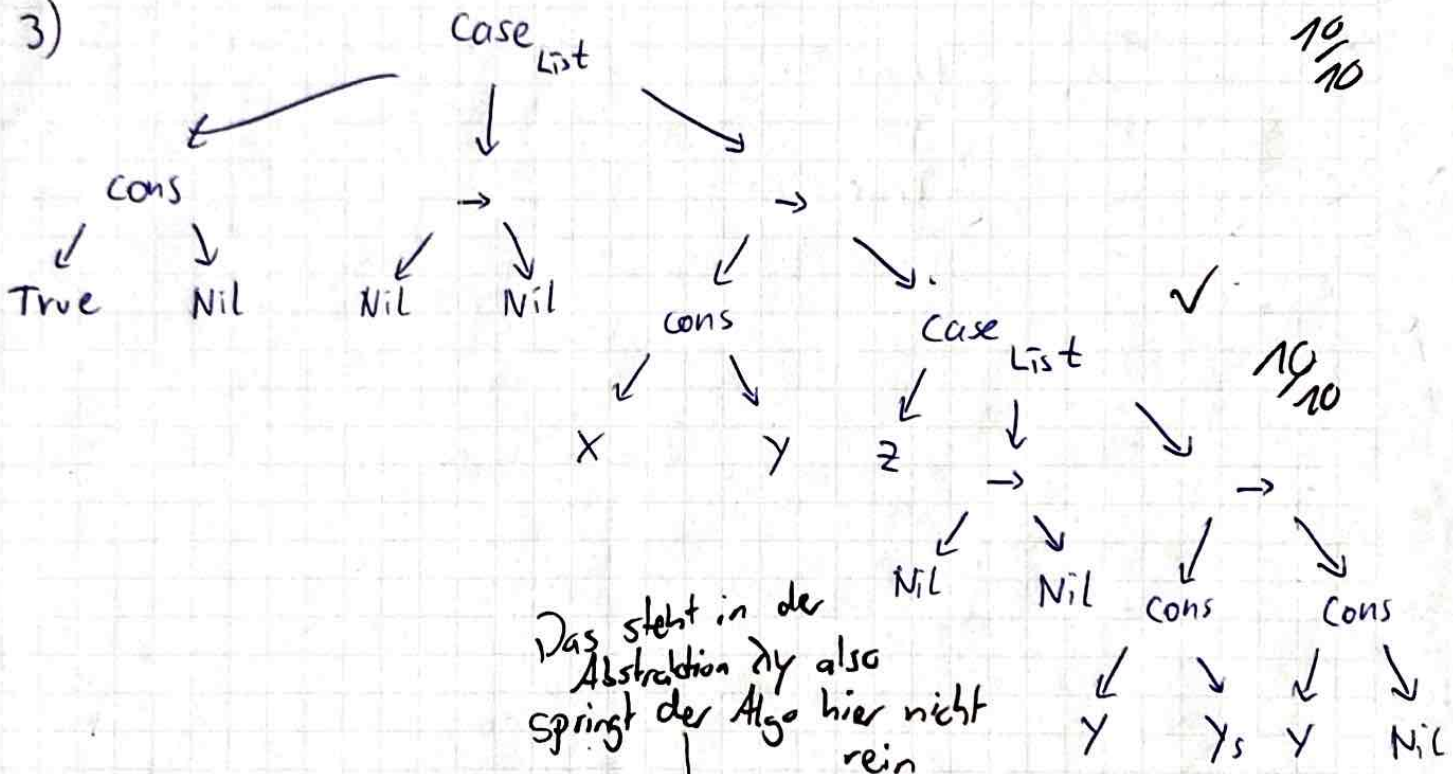 3)
Case List
10/10
cons
→
→
True Nil Nil Nil
cons
Case List
✓
10/10
X Y Z
→
→
Nil Nil cons Cons
Y Ys Y Nil
Das steht in der
Abstraktion λy also
springt der Algo hier nicht
rein